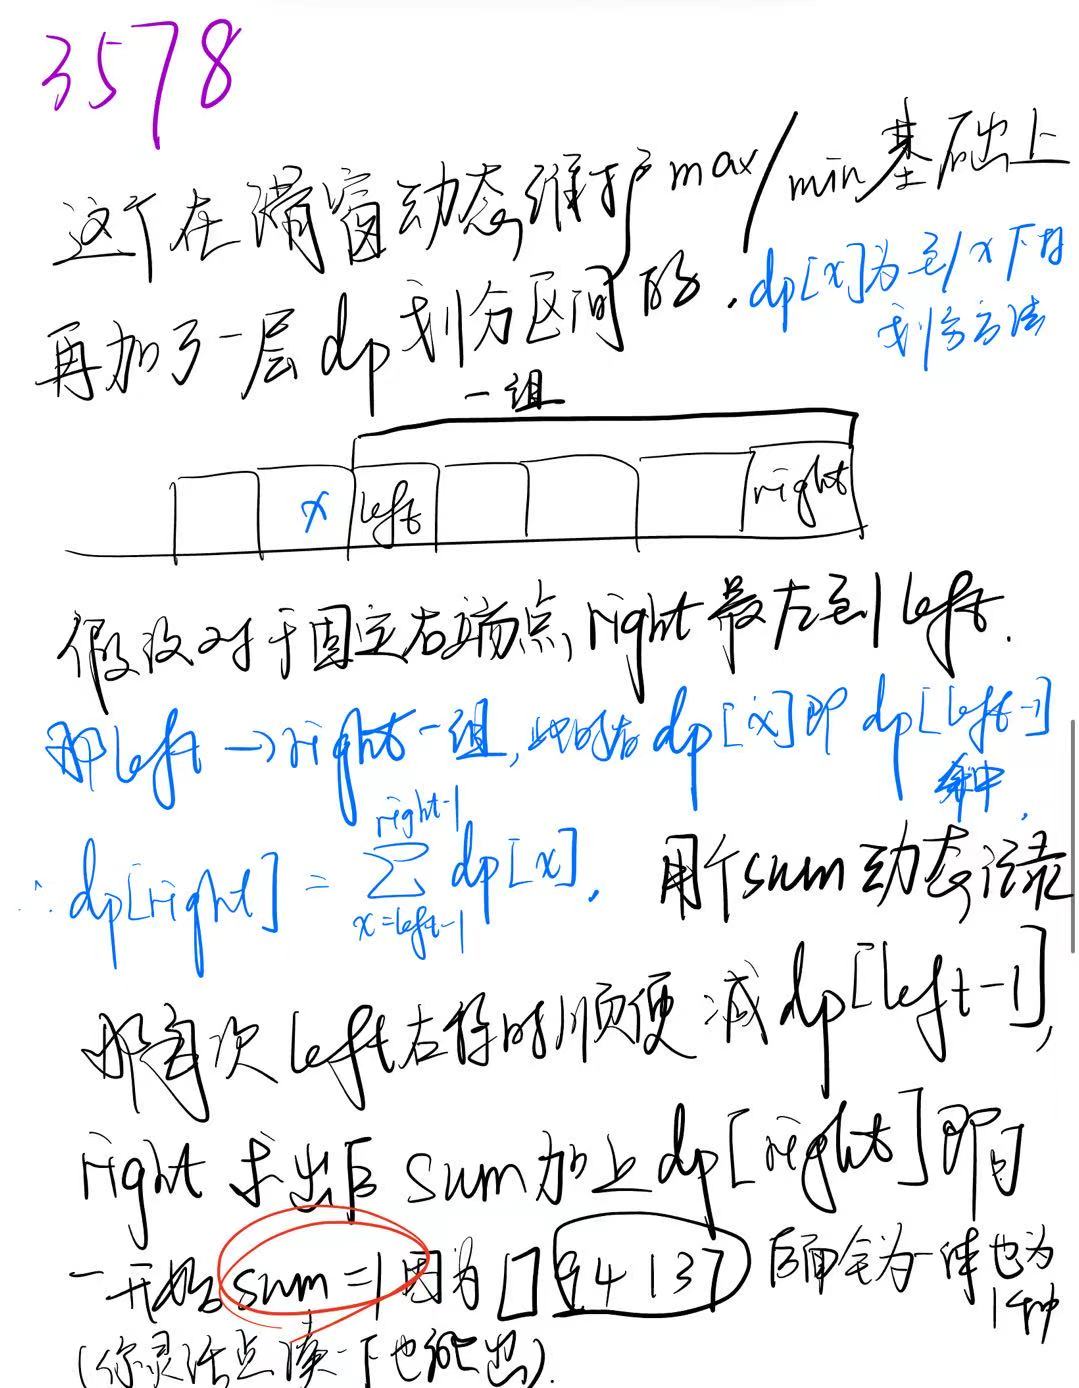 3578
这个在滑窗动态维护max/min基础上
再加了一层dp划分区间的.
dp[x]为到x下标
划分方法
一组
x left right
假设对于固定右端点right最左到left.
那left→right一组,此时有dp[x]即dp[left-1]
种
∴dp[right] = Σ dp[x].
right-1
x=left-1
用个sum动态记录
那每次left右移时顺便减dp[left-1],
right求出后sum加上dp[right]即可
一开始sum=1因为[] 9 4 1 3 7 后面全为一体也为
1种
(你灵活点凑一下也能凑出).